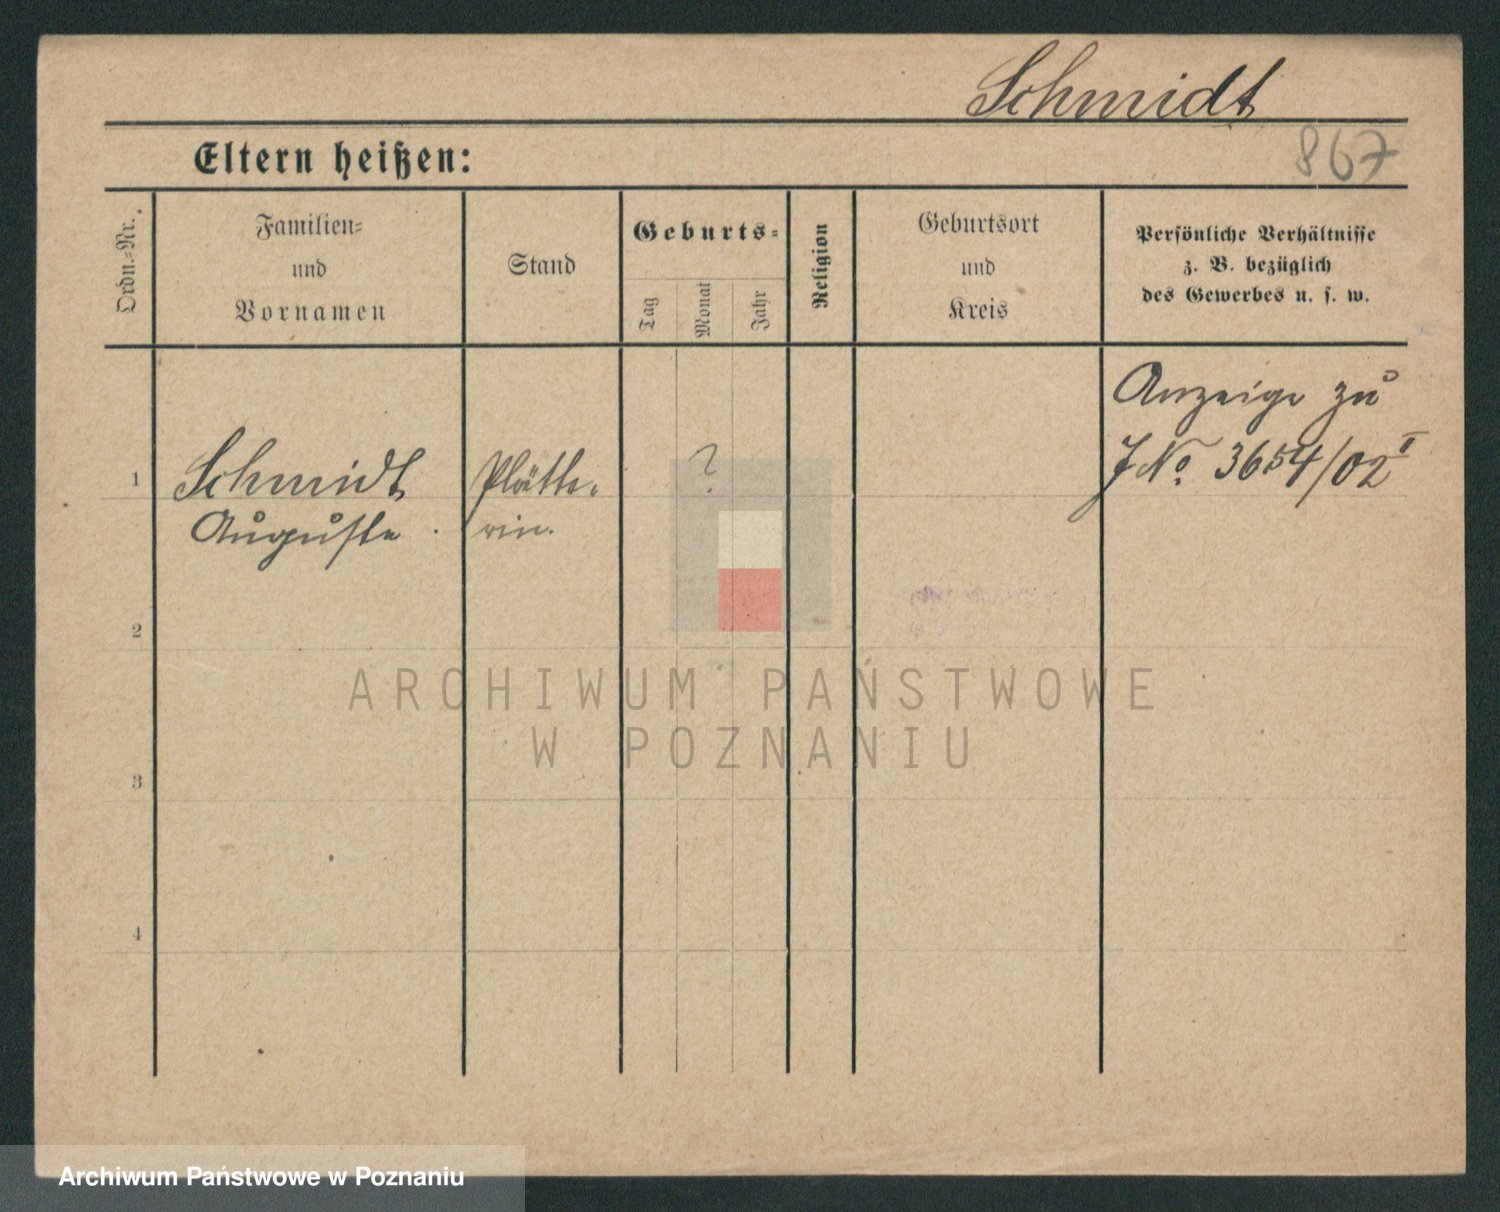 Schmidt
867
Eltern heißen:
Ordn.-Nr.
Familien-
und
Vornamen
Stand
Geburts-
Tag
Monat
Jahr
Religion
Geburtsort
und
Kreis
Persönliche Verhältnisse
z. B. bezüglich
des Gewerbes u. s. w.
1
Schmidt
Auguste
Plätte-
rin.
?
Anzeige zu
J No. 3654/02 II
2
3
4
ARCHIWUM PAŃSTWOWE
W POZNANIU
Archiwum Państwowe w Poznaniu